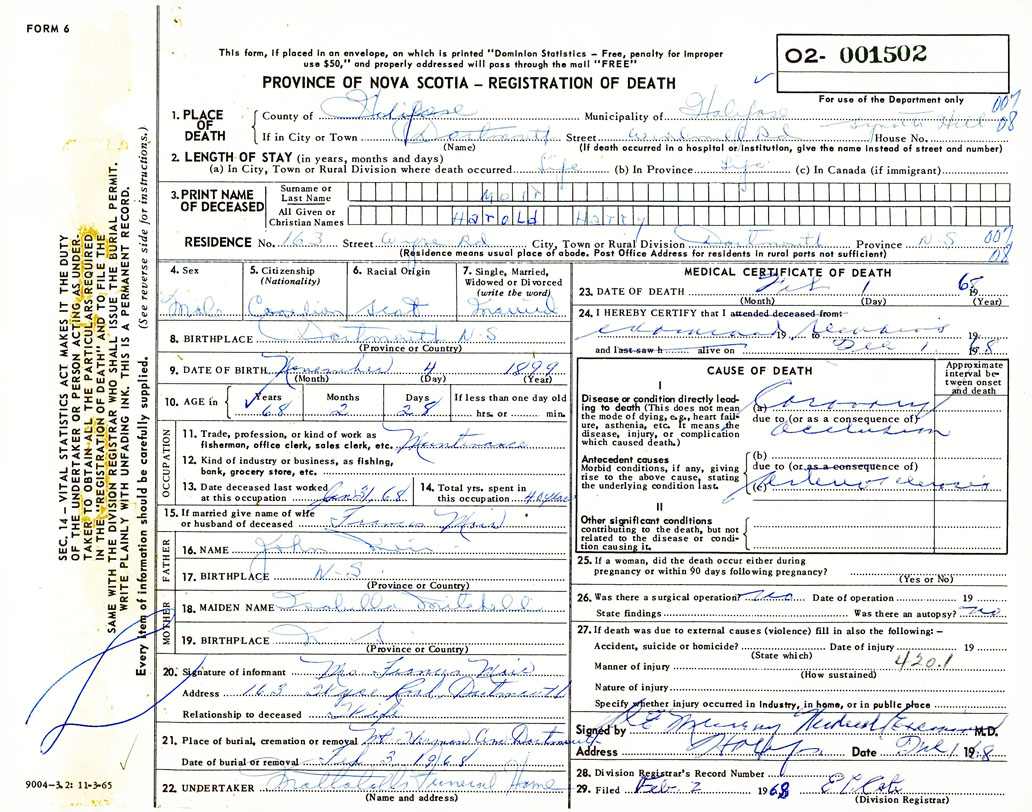 FORM 6
This form, if placed in an envelope, on which is printed "Dominion Statistics – Free, penalty for improper
use $50," and properly addressed will pass through the mail "FREE"
PROVINCE OF NOVA SCOTIA – REGISTRATION OF DEATH
02- 001502
For use of the Department only
007
08
1. PLACE OF DEATH
County of Halifax Municipality of Halifax
If in City or Town Dartmouth Street Windmill Rd House No.
(Name) (If death occurred in a hospital or institution, give the name instead of street and number)
2. LENGTH OF STAY (in years, months and days)
(a) In City, Town or Rural Division where death occurred Life (b) In Province Life (c) In Canada (if immigrant)
3. PRINT NAME OF DECEASED
Surname or Last Name Moir
All Given or Christian Names Harold Harry
RESIDENCE No. 163 Street Wyse Rd City, Town or Rural Division Dartmouth Province N S
(Residence means usual place of abode. Post Office Address for residents in rural parts not sufficient)
007
08
4. Sex
Male
5. Citizenship
(Nationality)
Canadian
6. Racial Origin
Scot
7. Single, Married, Widowed or Divorced
(write the word)
Married
8. BIRTHPLACE Dartmouth N-S
(Province or Country)
9. DATE OF BIRTH November 4 1899
(Month) (Day) (Year)
10. AGE in
Years 68
Months 2
Days 28
If less than one day old
hrs. or min.
OCCUPATION
11. Trade, profession, or kind of work as
fisherman, office clerk, sales clerk, etc. Maintenance
12. Kind of industry or business, as fishing,
bank, grocery store, etc.
13. Date deceased last worked
at this occupation Jan 31/68
14. Total yrs. spent in
this occupation 40 years
15. If married give name of wife
or husband of deceased Frances Moir
FATHER
16. NAME John Moir
17. BIRTHPLACE N-S
(Province or Country)
MOTHER
18. MAIDEN NAME Isabella Mitchell
19. BIRTHPLACE N S
(Province or Country)
20. Signature of informant Mrs Frances Moir
Address 163 Wyse Road Dartmouth
Relationship to deceased Wife
21. Place of burial, cremation or removal Mt Hermon Cem Dartmouth
Date of burial or removal Feb 3 1968
22. UNDERTAKER Mattatall's Funeral Home
(Name and address)
MEDICAL CERTIFICATE OF DEATH
23. DATE OF DEATH Feb 1 1968
(Month) (Day) (Year)
24. I HEREBY CERTIFY that I attended deceased from:
19 to 19
and last saw h alive on 1 1968
CAUSE OF DEATH
Approximate interval between onset and death
I
Disease or condition directly lead-
ing to death (This does not mean
the mode of dying, e.g., heart fail-
ure, asthenia, etc. It means the
disease, injury, or complication
which caused death.)
(a) Coronary
due to (or as a consequence of)
Occlusion
Antecedent causes
Morbid conditions, if any, giving
rise to the above cause, stating
the underlying condition last.
(b)
due to (or as a consequence of)
(c) Arteriosclerosis
II
Other significant conditions
contributing to the death, but not
related to the disease or condi-
tion causing it.
25. If a woman, did the death occur either during
pregnancy or within 90 days following pregnancy?
(Yes or No)
26. Was there a surgical operation? no Date of operation 19
State findings Was there an autopsy? no
27. If death was due to external causes (violence) fill in also the following: –
Accident, suicide or homicide? Date of injury 19
(State which)
420.1
Manner of injury
(How sustained)
Nature of injury
Specify whether injury occurred in industry, in home, or in public place
Signed by Murray Medical Examiner M.D.
Address Halifax Date 1 1968
28. Division Registrar's Record Number
29. Filed Feb. 2 1968
(Division Registrar)
SEC. 14 – VITAL STATISTICS ACT MAKES IT THE DUTY
OF THE UNDERTAKER OR PERSON ACTING AS UNDER-
TAKER TO OBTAIN ALL THE PARTICULARS REQUIRED
IN THE "REGISTRATION OF DEATH" AND TO FILE THE
SAME WITH THE DIVISION REGISTRAR WHO SHALL ISSUE THE BURIAL PERMIT.
WRITE PLAINLY WITH UNFADING INK. THIS IS A PERMANENT RECORD.
Every item of information should be carefully supplied. (See reverse side for instructions.)
9004-3.2: 11-3-65